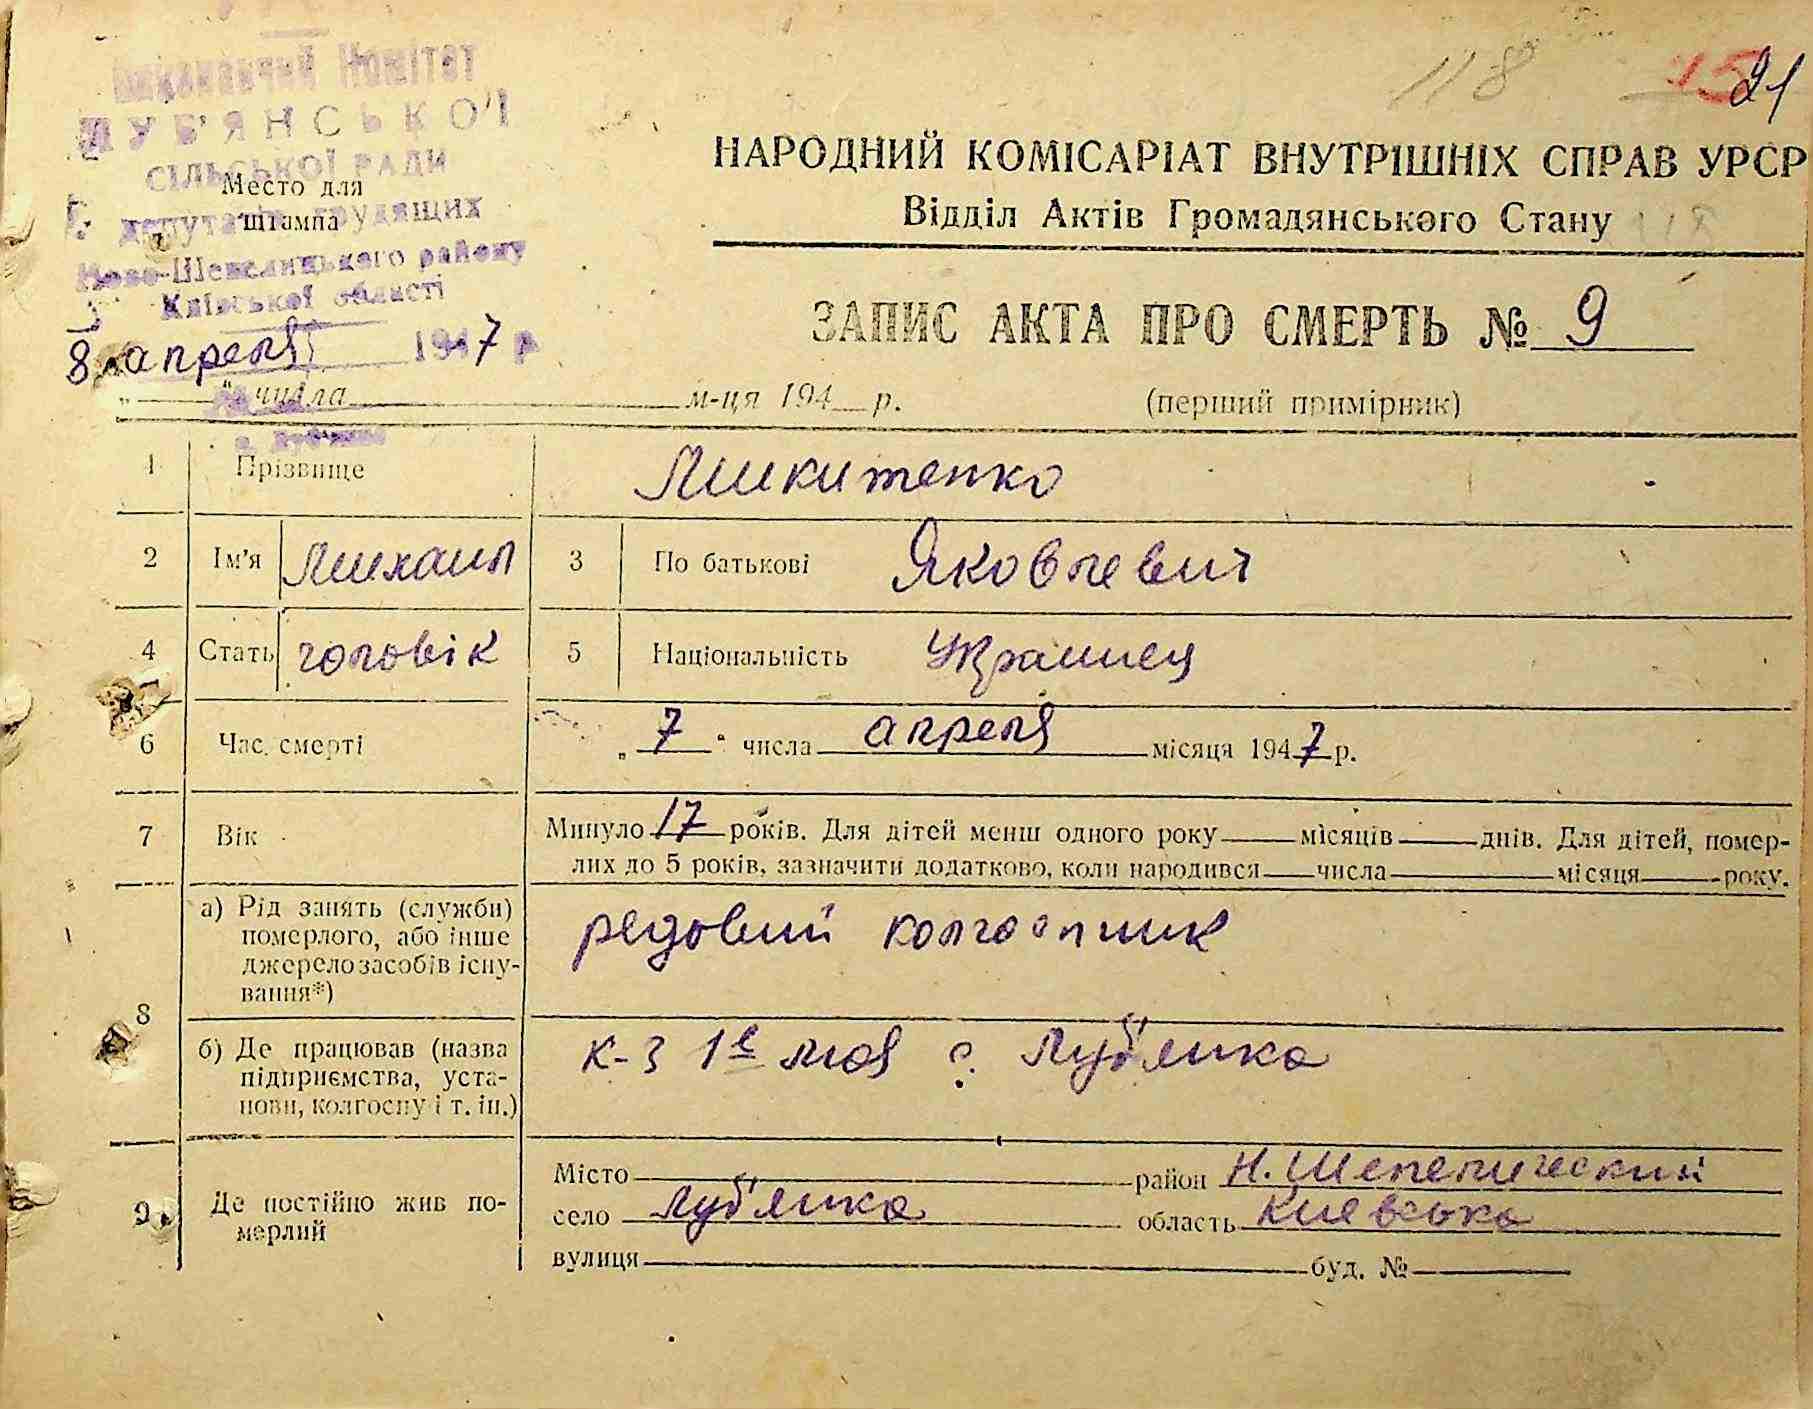 Виконавчий Комітет
ЛУБ'ЯНСЬКОЇ
СІЛЬСЬКОЇ РАДИ
депутатів трудящих
Ново-Шепелицького району
Київської області
8 апреля 1947 р
с. Луб'янка
Место для
штампа
118
15
21
НАРОДНИЙ КОМІСАРІАТ ВНУТРІШНІХ СПРАВ УРСР
Відділ Актів Громадянського Стану
118
ЗАПИС АКТА ПРО СМЕРТЬ № 9
„ “ числа м-ця 194 р. (перший примірник)
1 Прізвище Микитенко
2 Ім'я Михаил 3 По батькові Яковлевич
4 Стать чоловік 5 Національність Украинец
6 Час смерті „ 7 “ числа апреля місяця 1947 р.
7 Вік Минуло 17 років. Для дітей менш одного року місяців днів. Для дітей, помер-
лих до 5 років, зазначити додатково, коли народився числа місяця року.
8 а) Рід занять (служби)
померлого, або інше
джерело засобів існу-
вання*)
редовий колгоспник
б) Де працював (назва
підприємства, уста-
нови, колгоспу і т. ін.)
к-з 1е мая с. Луб'янка
9 Де постійно жив по-
мерлий
Місто район Н. Шепелический
село Луб'янка область Киевська
вулиця буд. №